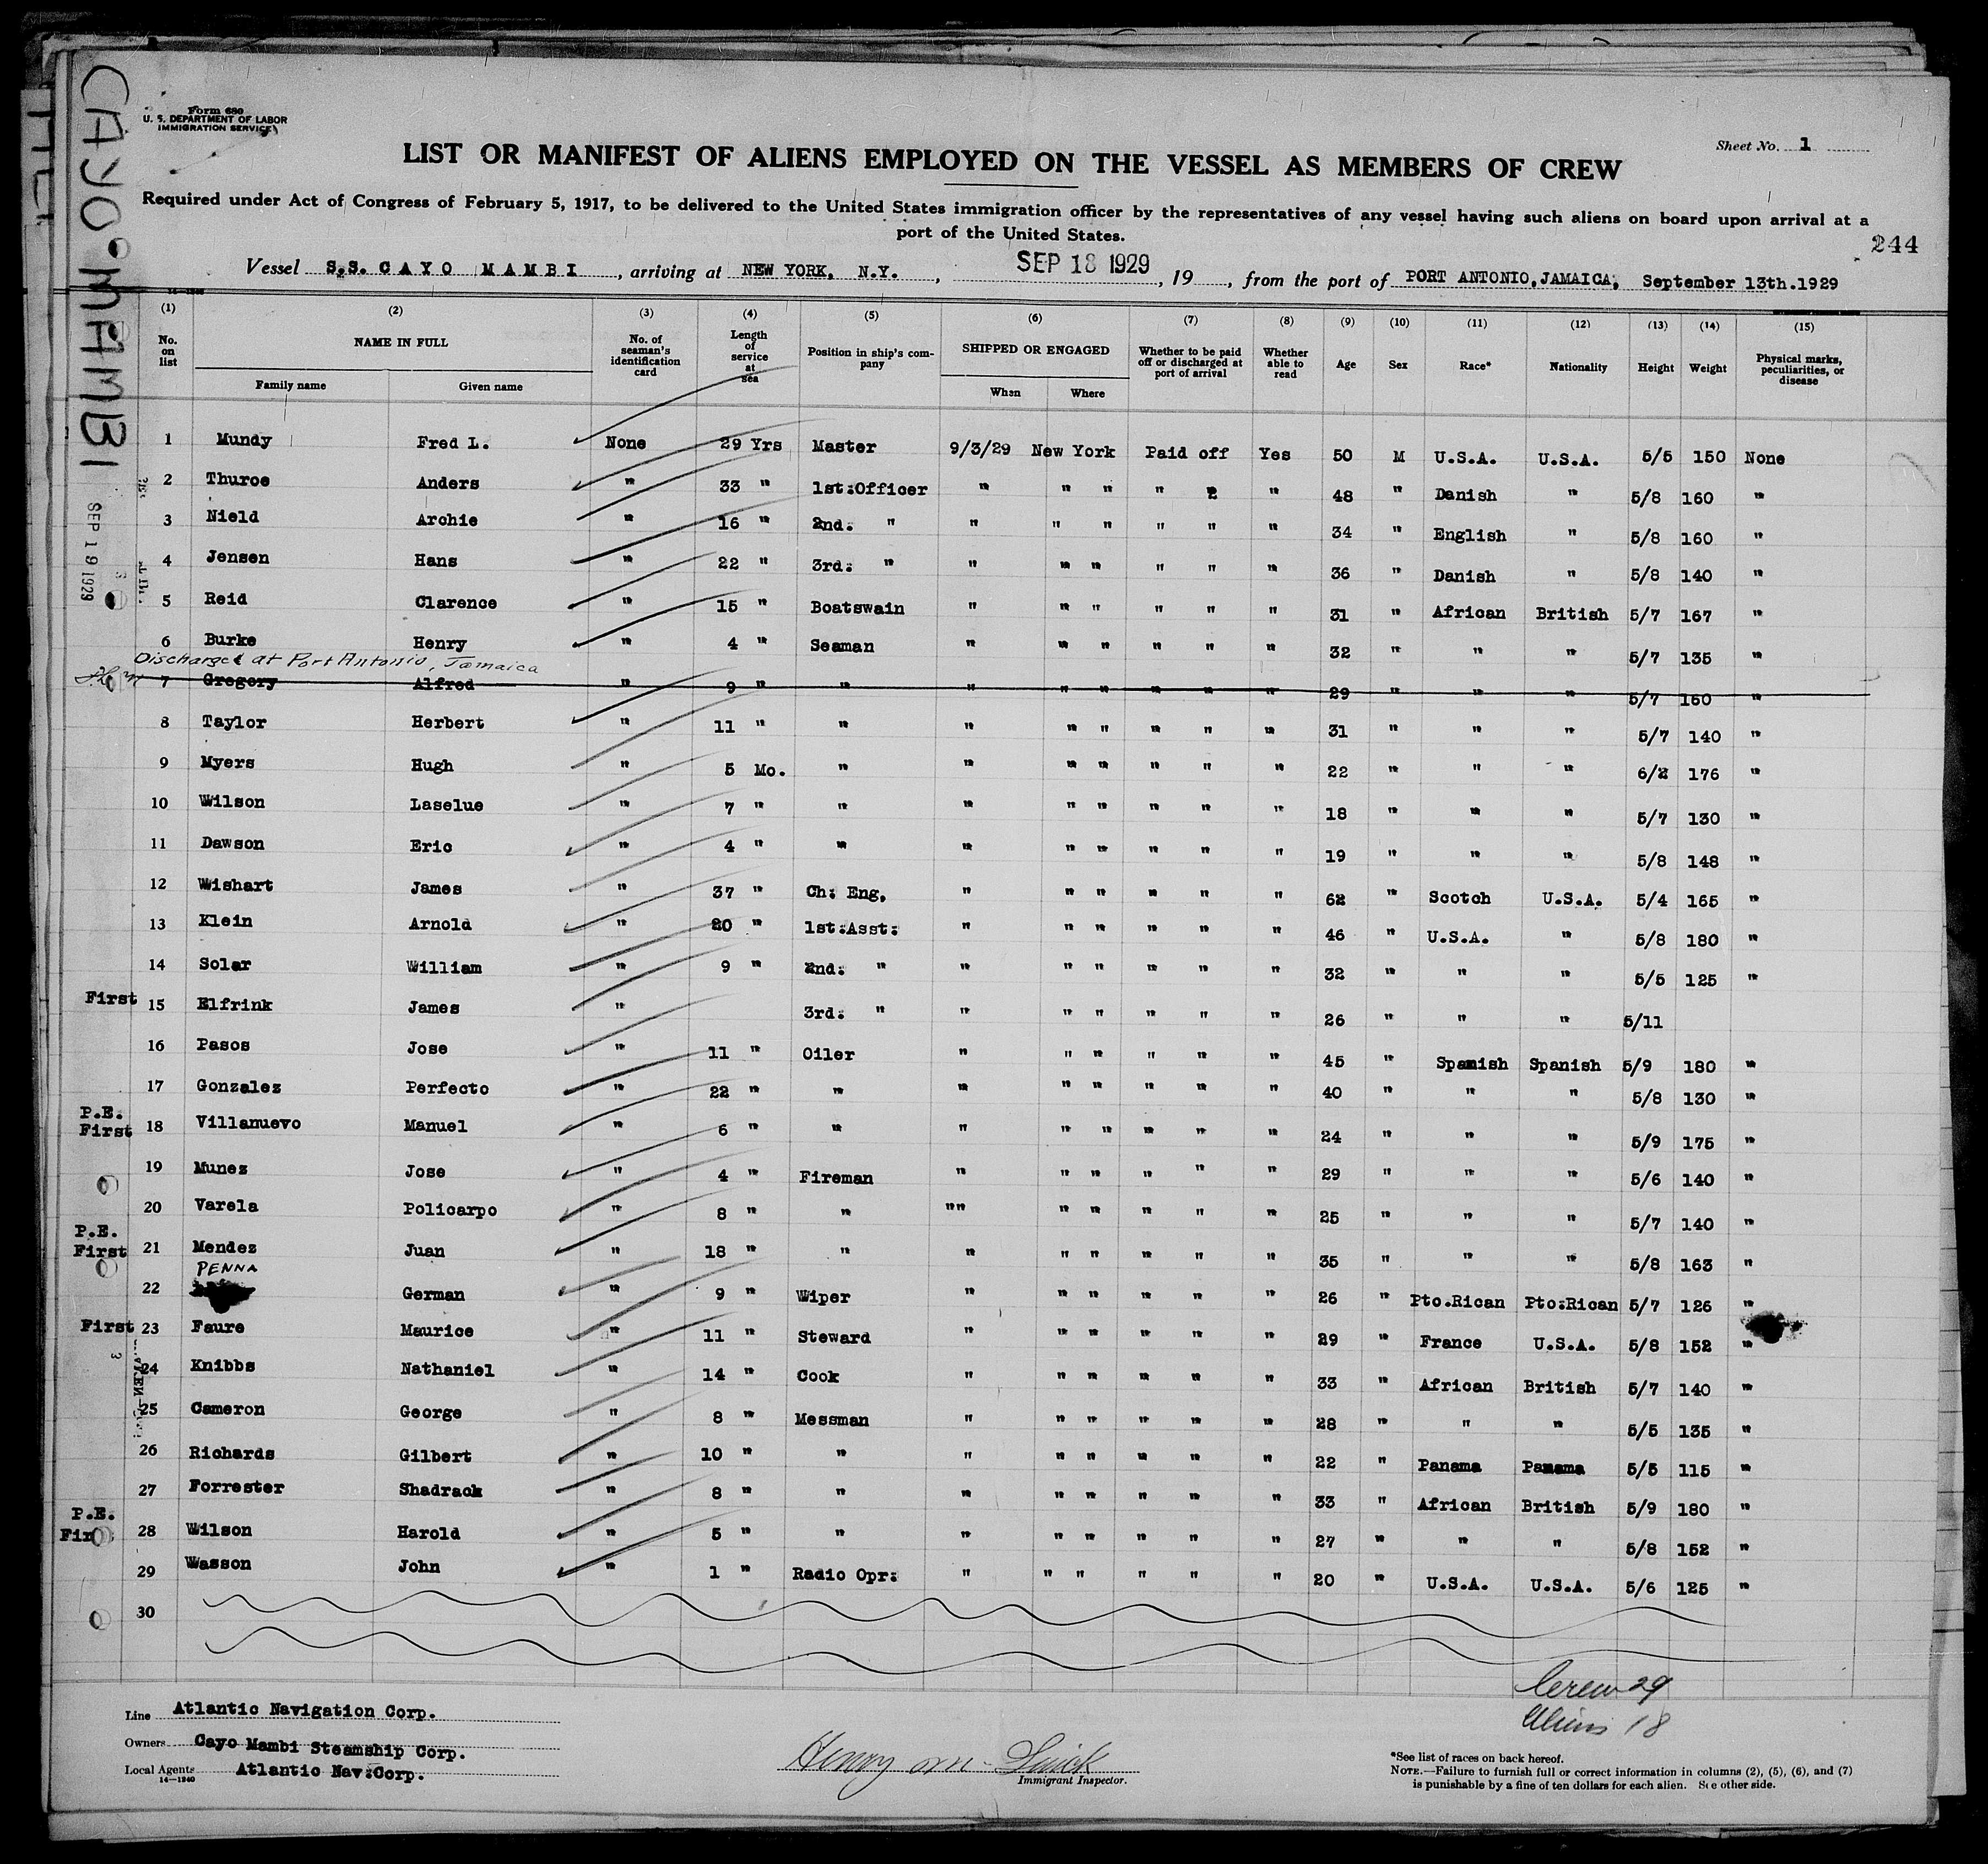 CAYO MAMBI
SEP 19 1929
Form 680
U. S. DEPARTMENT OF LABOR
IMMIGRATION SERVICE
Sheet No. 1
LIST OR MANIFEST OF ALIENS EMPLOYED ON THE VESSEL AS MEMBERS OF CREW
Required under Act of Congress of February 5, 1917, to be delivered to the United States immigration officer by the representatives of any vessel having such aliens on board upon arrival at a
port of the United States.
244
Vessel S.S. CAYO MAMBI, arriving at NEW YORK, N.Y., SEP 18 1929, 19, from the port of PORT ANTONIO, JAMAICA, September 13th.1929
(1) (2) (3) (4) (5) (6) (7) (8) (9) (10) (11) (12) (13) (14) (15)
No. on list NAME IN FULL Family name Given name No. of seaman's identification card Length of service at sea Position in ship's company SHIPPED OR ENGAGED When Where Whether to be paid off or discharged at port of arrival Whether able to read Age Sex Race* Nationality Height Weight Physical marks, peculiarities, or disease
1 Mundy Fred L. None 29 Yrs Master 9/3/29 New York Paid off Yes 50 M U.S.A. U.S.A. 5/5 150 None
2 Thuroe Anders " 33 " 1st:Officer " " " " " " 48 " Danish " 5/8 160 "
3 Nield Archie " 16 " 2nd. " " " " " " " 34 " English " 5/8 160 "
4 Jensen Hans " 22 " 3rd: " " " " " " " 36 " Danish " 5/8 140 "
5 Reid Clarence " 15 " Boatswain " " " " " " 31 " African British 5/7 167 "
6 Burke Henry " 4 " Seaman " " " " " " 32 " " " 5/7 135 "
Discharged at Port Antonio, Jamaica
7 Gregory Alfred " 9 " " " " " " " " 29 " " " 5/7 150 "
8 Taylor Herbert " 11 " " " " " " " " 31 " " " 5/7 140 "
9 Myers Hugh " 5 Mo. " " " " " " " 22 " " " 6/2 176 "
10 Wilson Laselue " 7 " " " " " " " " 18 " " " 5/7 130 "
11 Dawson Eric " 4 " " " " " " " " 19 " " " 5/8 148 "
12 Wishart James " 37 " Ch: Eng, " " " " " " 62 " Scotch U.S.A. 5/4 165 "
13 Klein Arnold " 20 " 1st:Asst: " " " " " " 46 " U.S.A. " 5/8 180 "
14 Solar William " 9 " 2nd: " " " " " " " 32 " " " 5/5 125 "
First 15 Elfrink James " 3rd: " " " " " " " 26 " " " 5/11
16 Pasos Jose " 11 " Oiler " " " " " " 45 " Spanish Spanish 5/9 180 "
17 Gonzalez Perfecto " 22 " " " " " " " " 40 " " " 5/8 130 "
P.E.
First 18 Villanuevo Manuel " 6 " " " " " " " " 24 " " " 5/9 175 "
19 Munez Jose " 4 " Fireman " " " " " " 29 " " " 5/6 140 "
20 Varela Policarpo " 8 " " "" " " " " " 25 " " " 5/7 140 "
P.E.
First 21 Mendez Juan " 18 " " " " " " " " 35 " " " 5/8 163 "
PENNA
22 German " 9 " Wiper " " " " " " 26 " Pto.Rican Pto:Rican 5/7 126 "
First 23 Faure Maurice " 11 " Steward " " " " " " 29 " France U.S.A. 5/8 152 "
24 Knibbs Nathaniel " 14 " Cook " " " " " " 33 " African British 5/7 140 "
25 Cameron George " 8 " Messman " " " " " " 28 " " " 5/5 135 "
26 Richards Gilbert " 10 " " " " " " " " 22 " Panama Panama 5/5 115 "
27 Forrester Shadrack " 8 " " " " " " " " 33 " African British 5/9 180 "
P.E.
28 Wilson Harold " 5 " " " " " " " " 27 " " " 5/8 152 "
29 Wasson John " 1 " Radio Opr: " " " " " " 20 " U.S.A. U.S.A. 5/6 125 "
30
Crew 29
Aliens 18
Line Atlantic Navigation Corp.
Owners Cayo Mambi Steamship Corp.
Local Agents Atlantic Nav:Corp.
14—1240
Henry
Immigrant Inspector.
*See list of races on back hereof.
NOTE.—Failure to furnish full or correct information in columns (2), (5), (6), and (7)
is punishable by a fine of ten dollars for each alien. See other side.